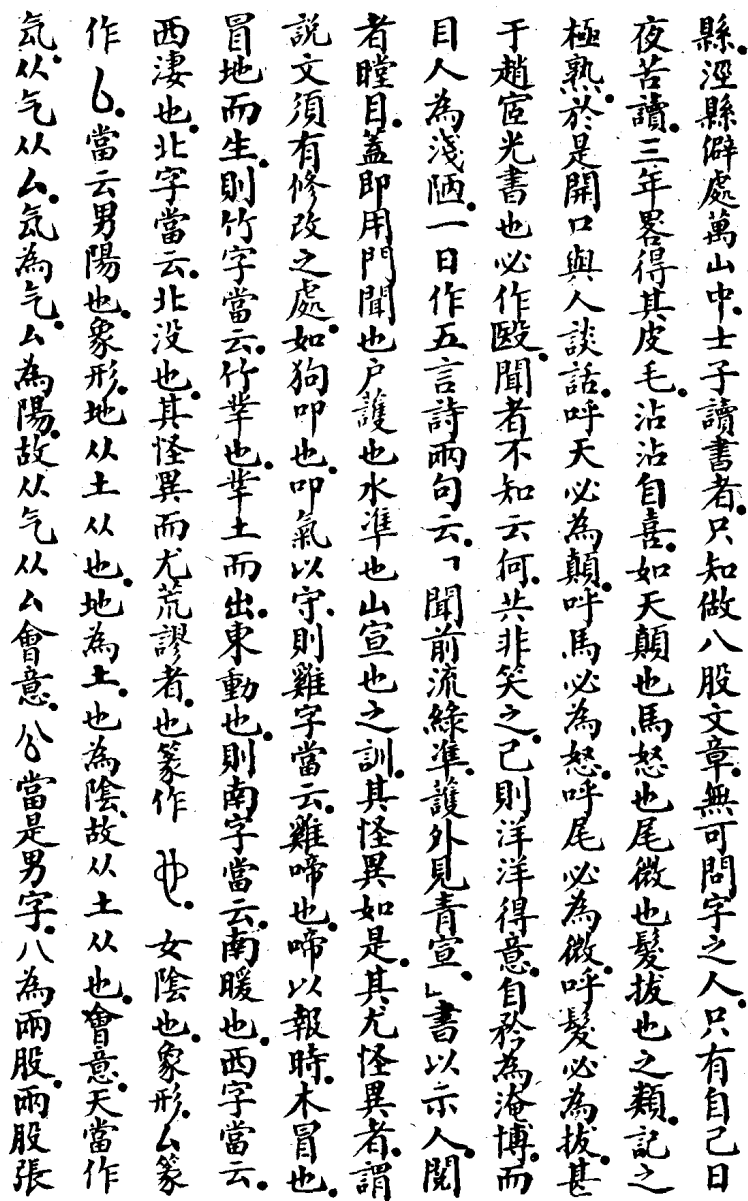 縣。涇縣僻處萬山中。士子讀書者。只知做八股文章。無可問字之人。只有自己日
夜苦讀。三年畧得其皮毛。沾沾自喜。如天顛也馬怒也尾微也髮拔也之類。記之
極熟。於是開口與人談話。呼天必為顛。呼馬必為怒。呼尾必為微。呼髮必為拔。甚
于趙宧光書也必作殹。聞者不知云何。共非笑之。己則洋洋得意。自矜為淹博。而
目人為淺陋。一日作五言詩兩句云。「聞前流綠準。護外見青宣。」書以示人。閱
者瞠目。蓋即用門聞也户護也水準也山宣也之訓。其怪異如是。其尤怪異者。謂
說文須有修改之處。如狗叩也。叩氣以守。則雞字當云。雞啼也。啼以報時。木冒也。
冒地而生。則竹字當云。竹茟也。茟土而出。東動也。則南字當云。南暖也。西字當云。
西淒也。北字當云。北没也。其怪異而尤荒謬者。也篆作 。女陰也。象形。厶篆
作 。當云男陽也。象形。地从土从也。地為土。也為陰。故从土从也。會意。天當作
気。从气从厶。気為气。厶為陽。故从气从厶會意。公當是男字。八為兩股。兩股張